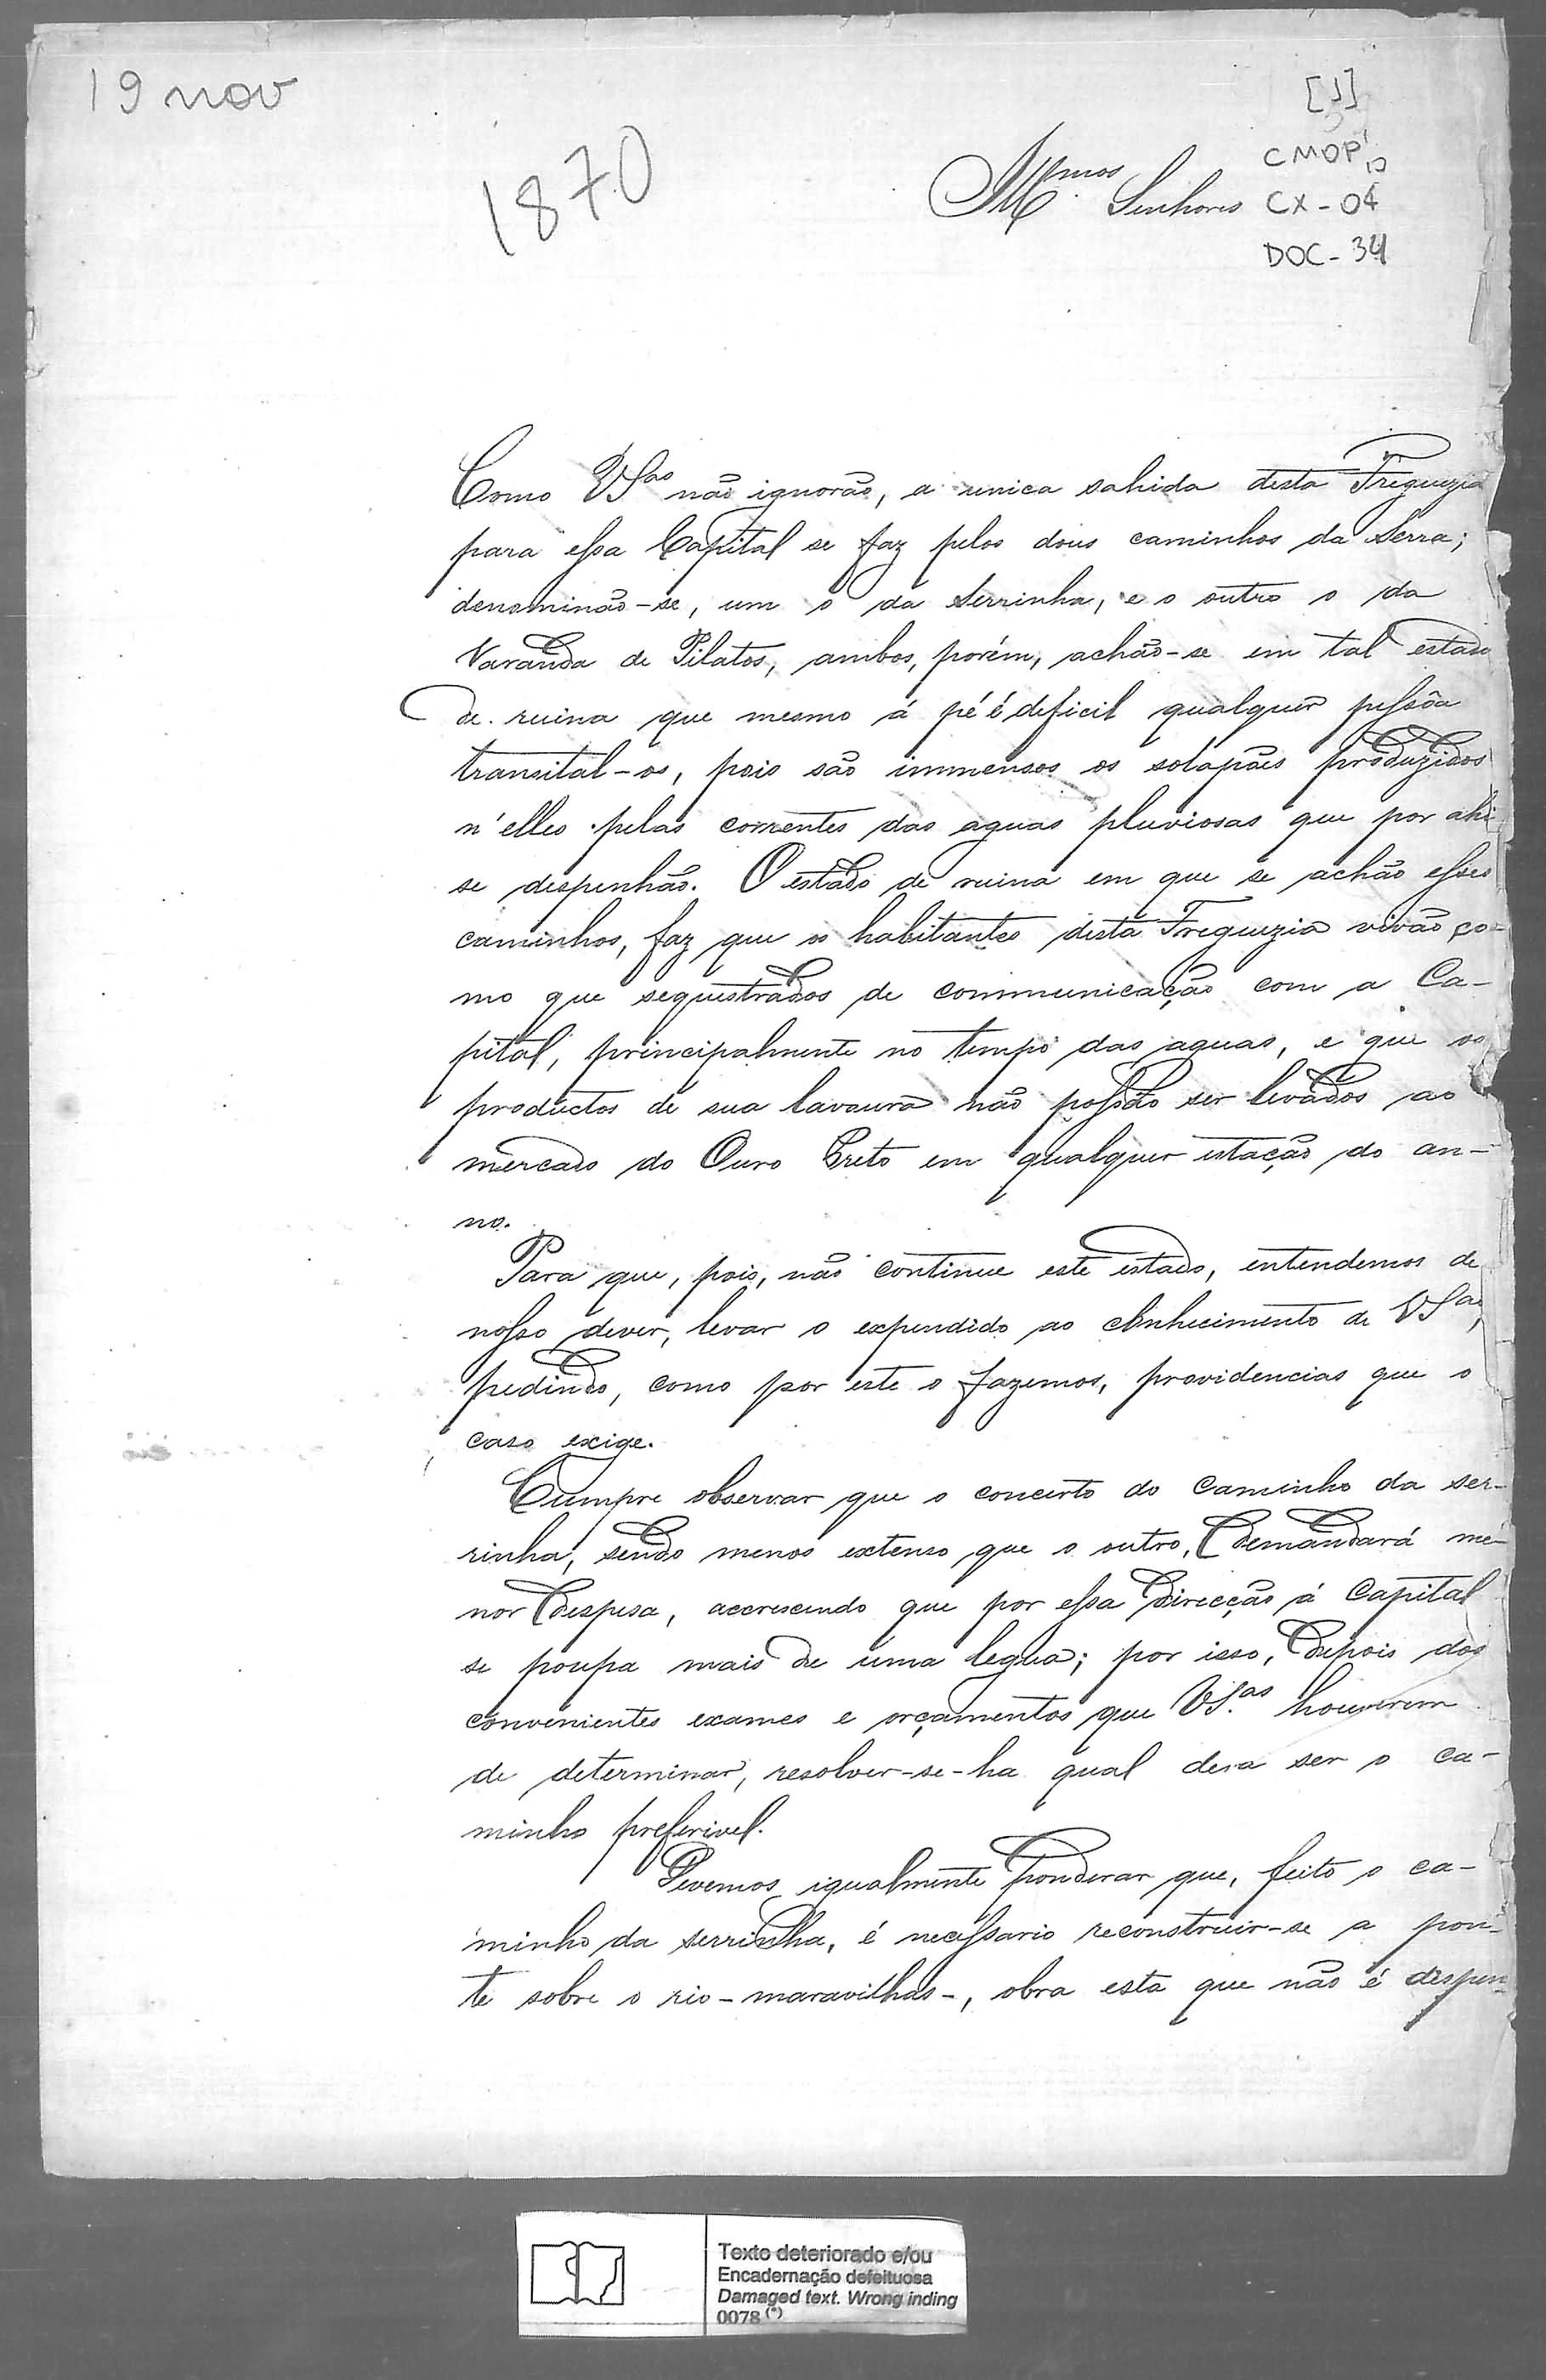 19 nov
[1]
1870
CMOP
Illmos Senhores
CX-04
DOC-34
Como VSas não ignorão, a unica sahida desta Freguezia
para essa Capital se faz pelos dous caminhos da Serra;
denominão-se, um o da Serrinha, e o outro o da
Varanda de Pilatos, ambos, porém, achão-se em tal estado
de ruina que mesmo á pé é deficil qualquer pessôa
transital-os, pois são immensos os solapões produzidos
n'elles pelas correntes das aguas pluviosas que por ahi
se despenhão. O estado de ruina em que se achão esses
caminhos, faz que os habitantes desta Freguezia vivão co-
mo que sequestrados de communicação com a Ca-
pital, principalmente no tempo das aguas, e que os
productos de sua lavoura não possão ser levados ao
mercado do Ouro Preto em qualquer estação do an-
no.
Para que, pois, não continue este estado, entendemos de
nosso dever, levar o expendido ao conhecimento de VSas,
pedindo, como por este o fazemos, providencias que o
caso exige.
Cumpre observar que o concerto do caminho da ser-
rinha, sendo menos extenso que o outro, demandará me-
nor despesa, accrescendo que por essa direcção á Capital
se poupa mais de uma legua; por isso, depois dos
convenientes exames e orçamentos que VS.as houverem
de determinar, resolver-se-ha qual deva ser o ca-
minho preferivel.
Devemos igualmente ponderar que, feito o ca-
minho da serrinha, é necessario reconstruir-se a pon-
te sobre o rio-maravilhas-, obra esta que não é dispen-
Texto deteriorado e/ou
Encadernação defeituosa
Damaged text. Wrong inding
0078 (*)